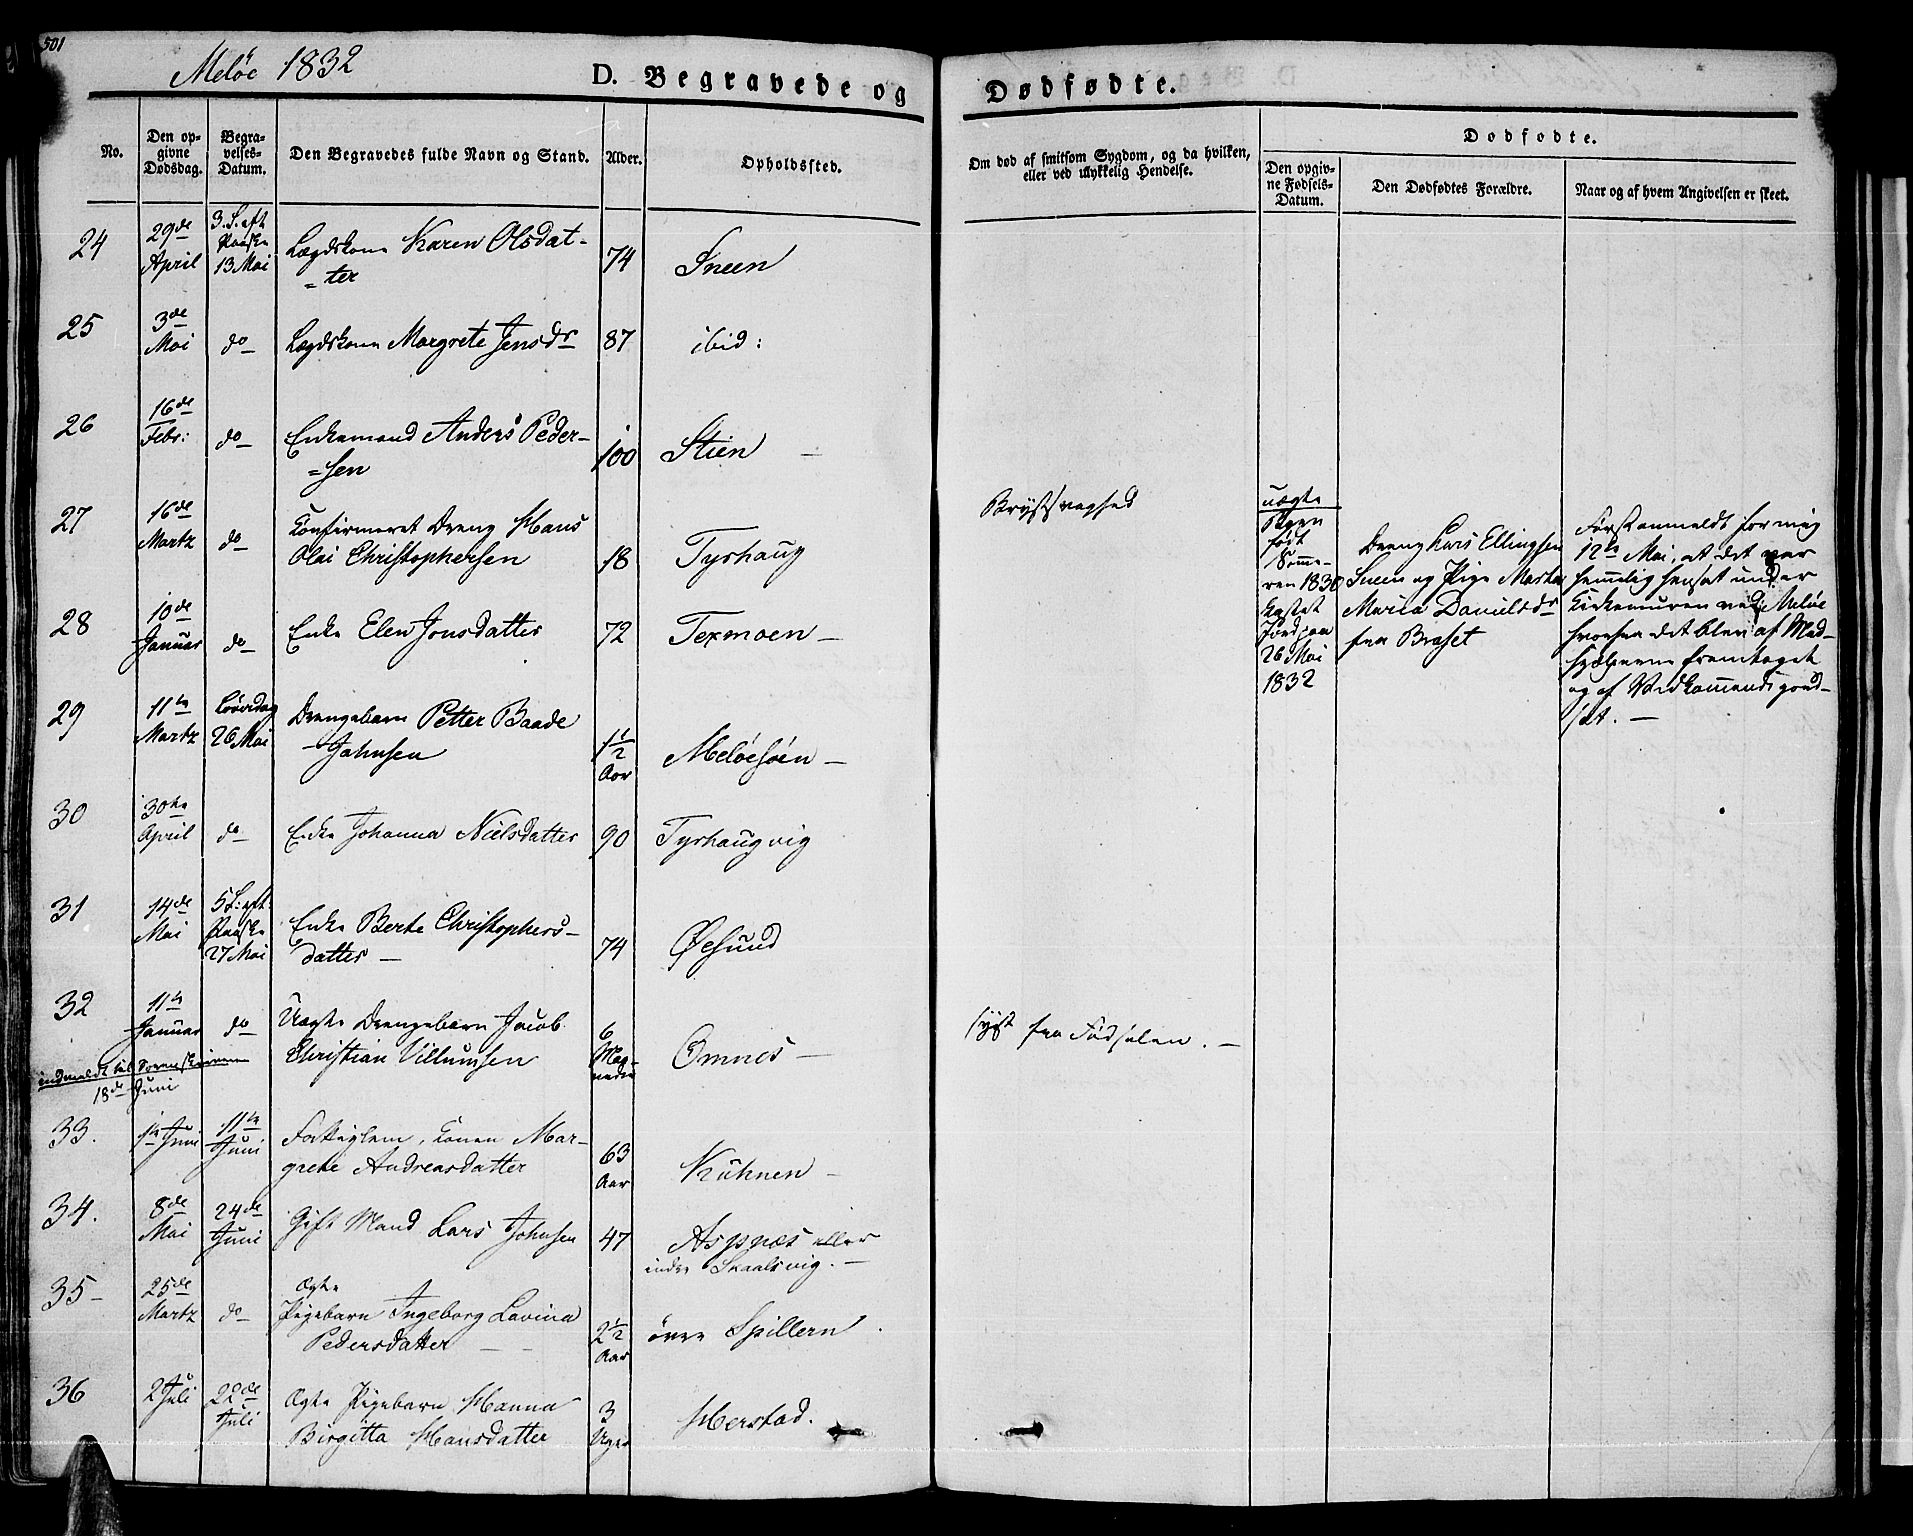 501
Meløe 1832
D. Begravede og Dødfødte.
No.
Den opgivne Dødsdag.
Begravelses-Datum.
Den Begravedes fulde Navn og Stand.
Alder.
Opholdssted.
Om død af smitsom Sygdom, og da hvilken,
eller ved ulykkelig Hendelse.
Dødfødte.
Den opgivne Fødsels-Datum.
Den Dødfødtes Forældre.
Naar og af hvem Angivelsen er skeet.
24 29de April 3.S.eft Paaske 13 Mai Lægdskone Karen Olsdat-
=ter 74 Sneen
25 3de Mai do Lægdskone Margrete Jensdr 87 ibid:
26 16de Febr: do Enkemand Anders Peder-
=sen 100 Stien
27 16de Martz do Confirmeret Dreng Hans
Olai Christophersen 18 Tyshaug
Brystsvaghed
28 10de Januar do Enke Elen Jonsdatter 72 Texmoen
uægte
født
Somme-
ren 1830
kastet
Jord paa
26 Mai
1832
Dreng Lars Ellingsen
Sneen og Pige Marta
Maria Danielsdr
fra Braset
Først anmeldt for mig
12te Mai, at det var
hemmelig hensat under
Kirkemuren ved Meløe
hvorfra det blev af Med-
hjelperne fremtaget
og af Vedkommende
29 11te Martz Løverdag 26 Mai Drengebarn Petter Baade
Johnsen 1 1/2 Aar Meløesøen
30 30te April do Enke Johanna Nielsdatter 90 Tyshaugvig
31 14de Mai 5 S: eft: Paaske 27 Mai Enke Berte Christophers-
datter 74 Øesund
32 11te Januar do Uægte Drengebarn Jacob
Christian Villumsen 6 Maaneder Omnes
syg fra Fødselen.
indmeldt til Sorenskriveren
18de Juni
33. 1te Juni 11te Juni Konen Mar-
grete Andreasdatter 63 Aar Kühnen
34. 8de Mai 24de Juni Gift Mand Lars Johnsen 47 Aspnæs eller
indre Skaalsvig.
35 25de Martz do Ægte
Pigebarn Ingeborg Lavina
Pedersdatter 2 1/2 Aar övre Spillern.
36 2 Juli 22de Juli Ægte Pigebarn Hanna
Birgitta Hansdatter 3 Uger Herstad.